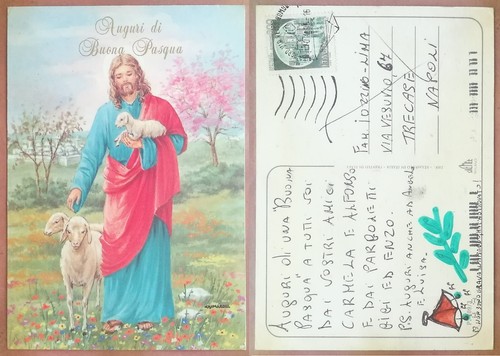 Auguri di
Buona Pasqua
FAM IOZZINO-LIMA
VIA VESUVIO 67
TRECASE
NAPOLI
AUGURI DI UNA "BUONA
PASQUA" A TUTTI VOI
DAI VOSTRI AMICI
CARMELA E ALFONSO
E DAI PARGOLETTI
BIBI ED ENZO.
P.S AUGURI ANCHE AD ANGELO
E LUISA.